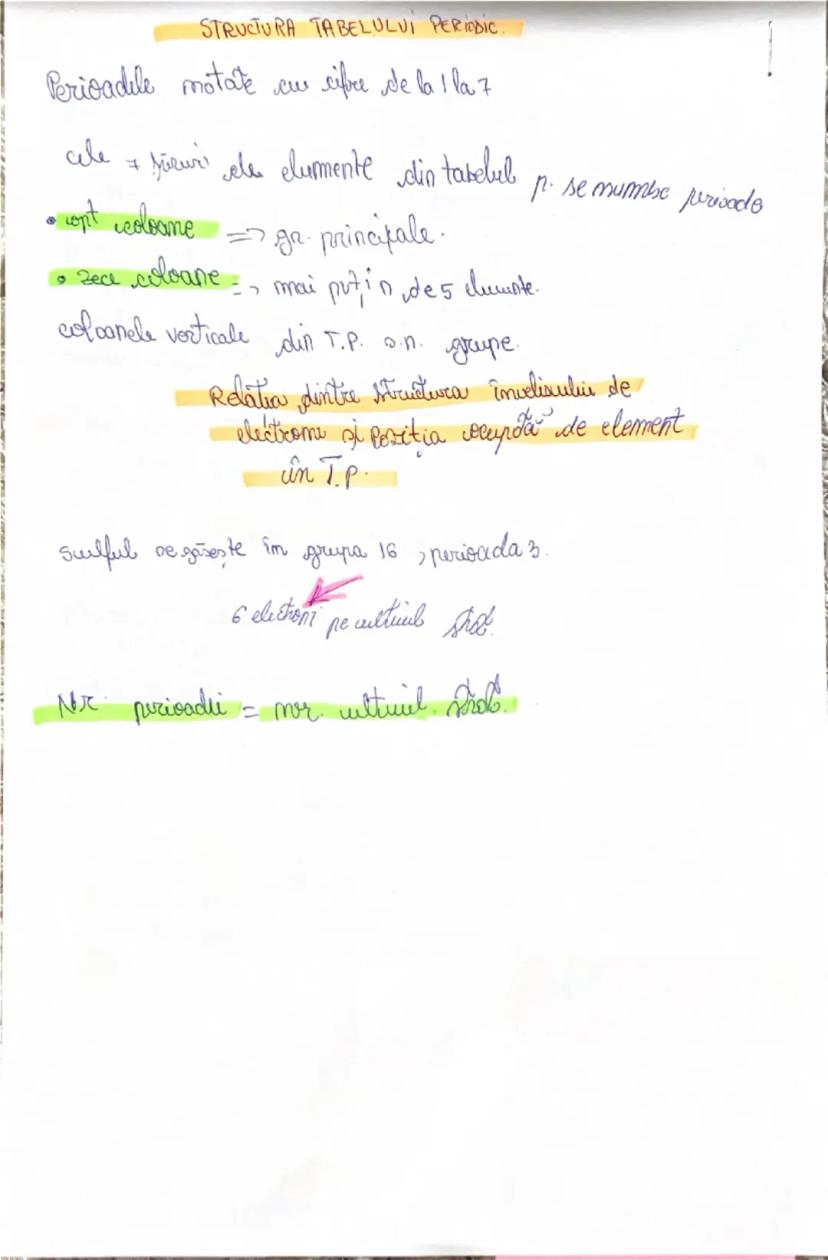 STRUCTURA TABELULUI PERIODIC.
Perioadele notate cu cifre de la 1 la 7
cele 7 șiruri de elemente din tabelul p. se numesc perioade
• opt coloane => gr. principale.
• zece coloane => mai puțin de 5 elemente.
coloanele verticale din T.P. s.n. grupe.
Relația dintre structura învelișului de
electroni și poziția ocupată de element
în T.P.
Sulful se găsește în grupa 16, perioada 3.
6 electroni pe ultimul strat.
Nr. perioadei = nr. ultimul. strat.